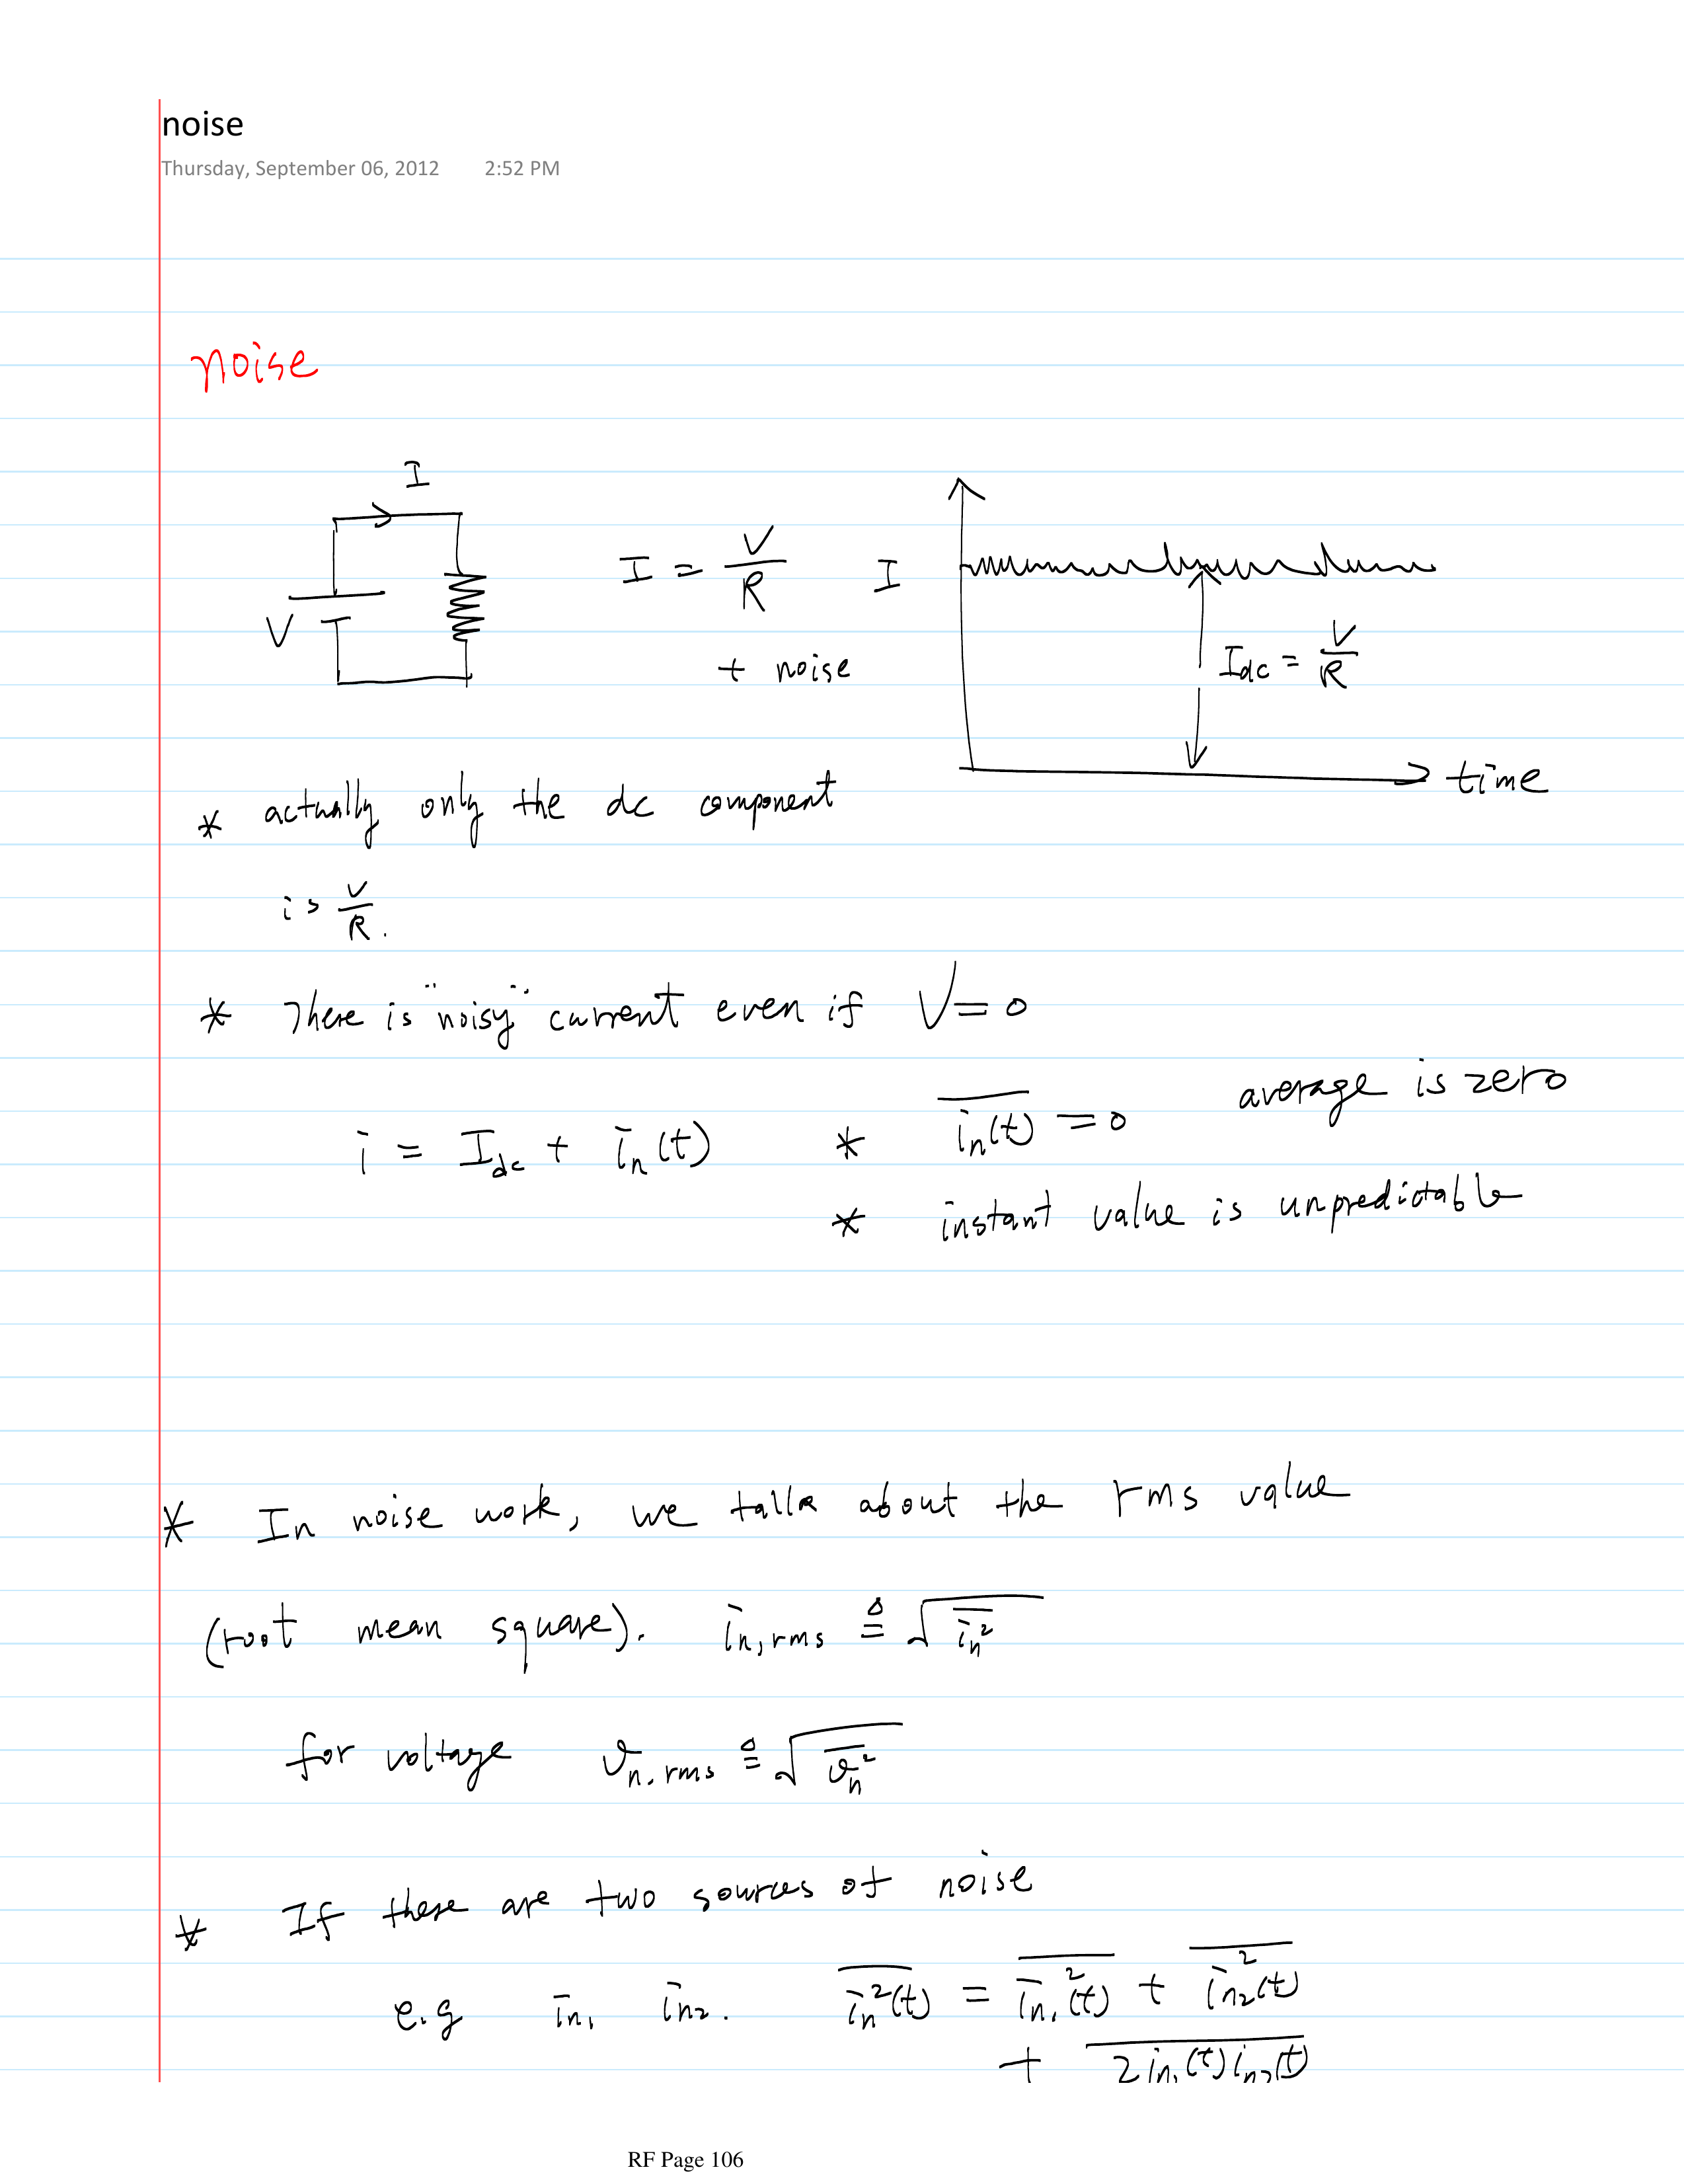 noise
Thursday, September 06, 2012 2:52 PM
noise
I
V
I = V/R
+ noise
I
I_dc = V/R
time
* actually only the dc component
is V/R.
* There is "noisy" current even if V=0
i = I_dc + i_n(t)
* \overline{i_n(t)} = 0 average is zero
* instant value is unpredictable
* In noise work, we talk about the rms value
(root mean square). i_{n,rms} ≜ √\overline{i_n^2}
for voltage v_{n,rms} ≜ √\overline{v_n^2}
* If there are two sources of noise
e.g i_{n1} i_{n2}. \overline{i_n^2(t)} = \overline{i_{n1}^2(t)} + \overline{i_{n2}^2(t)}
+ \overline{2i_{n1}(t)i_{n2}(t)}
RF Page 106